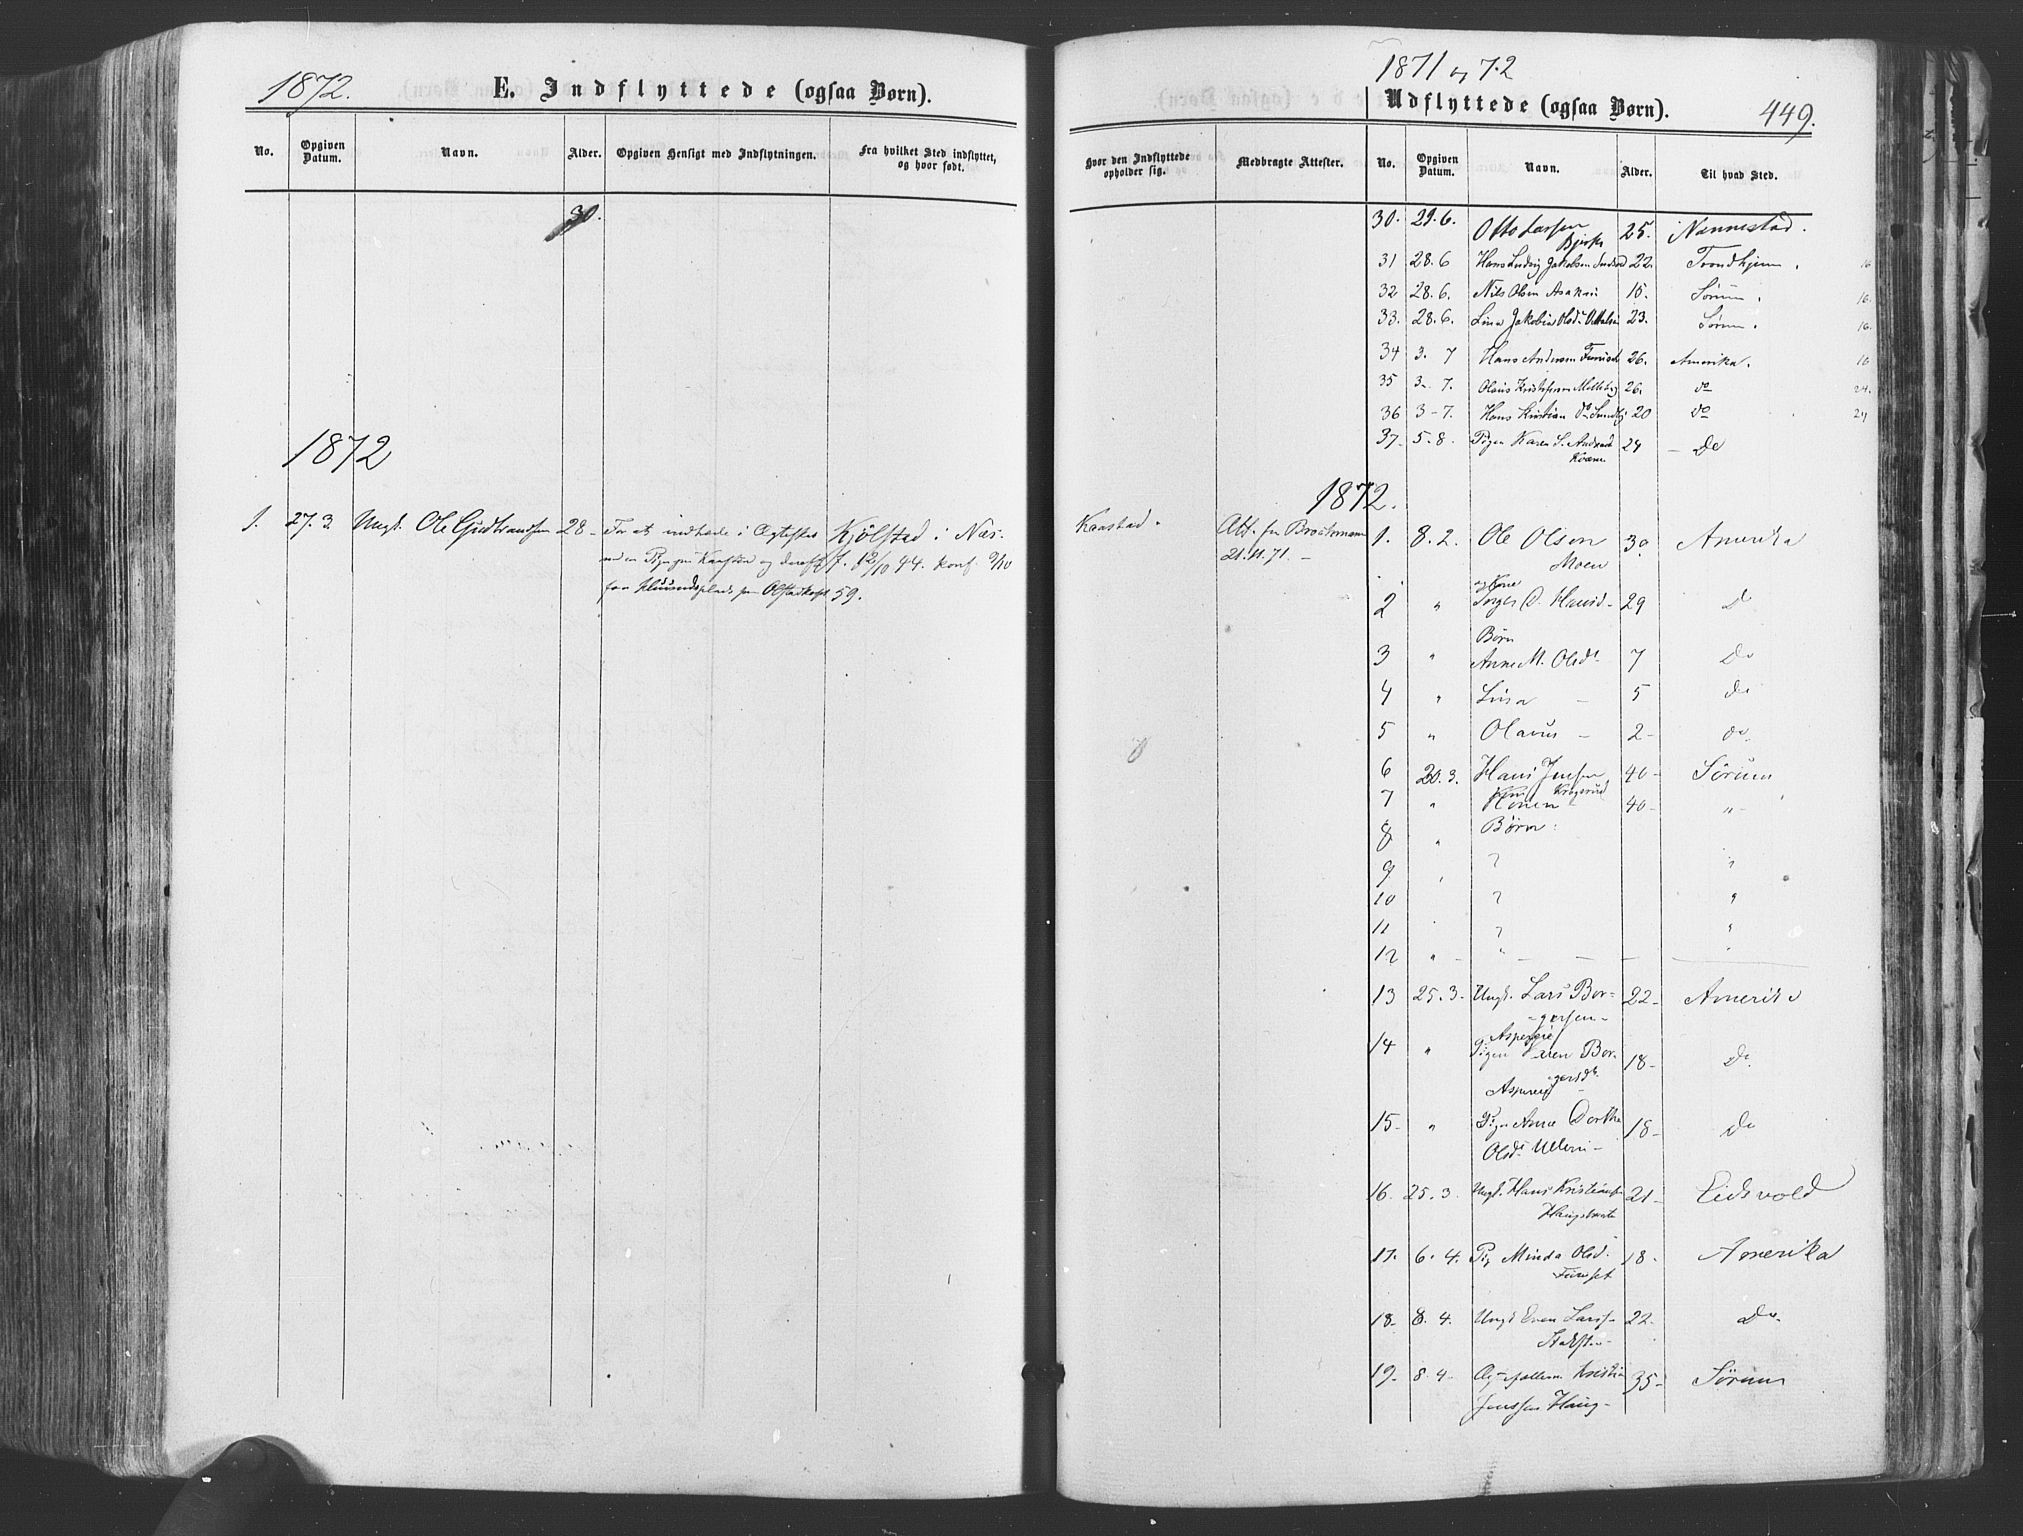 1872.
E. Indflyttede (ogsaa Børn).
No.
Opgiven Datum.
Navn.
Alder.
Opgiven Hensigt med Indflytningen.
Fra hvilket Sted indflyttet, og hvor født.
30.
1872
1. 27.3. Ungk. Ole Gudbrandsen 28 - For at indtræde i Ægteskab Kjølstad i Næs.
f. 12/10 44. konf. 9/10
59.
1871 og 72
Udflyttede (ogsaa Børn).
449.
Hvor den Indflyttede opholder sig.
Medbragte Attester.
No.
Opgiven Datum.
Navn.
Alder.
Til hvad Sted.
30. 29.6. Otto Larsen Bjerke 25. Nannestad.
31 28.6 Hans Ludvig Jakobsen 22. Trondhjem. 16
32 28.6. Nils Olsen Asak 15. Sørum. 16.
33. 28.6. Lina Jakobia Olsd. 23. Sørum. 16.
34 3. 7 Hans Andersen 26. Amerika. 10
35 3-7. Olaus Kristofersen Melleby 26. do 24.
36 3-7. Hans Kristian do Sundby 20 do 24
37. 5.8. Pigen Karen S. 24 - Do
1872.
Kaastad.
Att. fra
21.11.71. -
1. 8.2. Ole Olsen 30. Amerika
Moen
2 " og Kone
Inger O. Hansd. 29 Do
Børn
3 " Anne M. Olsd. 7 Do
4 " Lina - 5 do
5 " Olaus - 2 - do.
6 20.3. Hans Jensen 40 - Sørum
Krogsrud
7 " Konen 40 - " -
8 " Børn:
9 ' ? "
10 ? "
11 ? "
12 " - " - - - "
13 25.3. Ungk. Lars Bor- 22 - Amerika
gersen -
14 " Pigen Karen Bor- 18 - Do.
gersd.
15 - " Pigen Anne Dorthe 18 - Do
Olsd. Ulleri -
16. 25.3. Ungk. Hans Kristians. 21 - Eidsvold
17. 6.4. Pig Minda Olsd. 18 - Amerika
Funset
18 - 8.4. Ungk Even Larss. 22. Do.
19. 8.4. Kristian 35 - Sørum
Jenssen Haug -